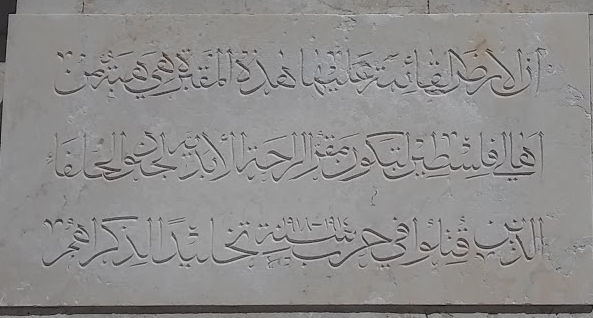 ان الارض القائمة عليها هذه المقبرة هي هبة من
اهالي فلسطين لتكون مقر الراحة الابدية لجنود الحلفاء
الذين قتلوا في حرب سنة ١٩١٤-١٩١٨ تخليدا لذكراهم